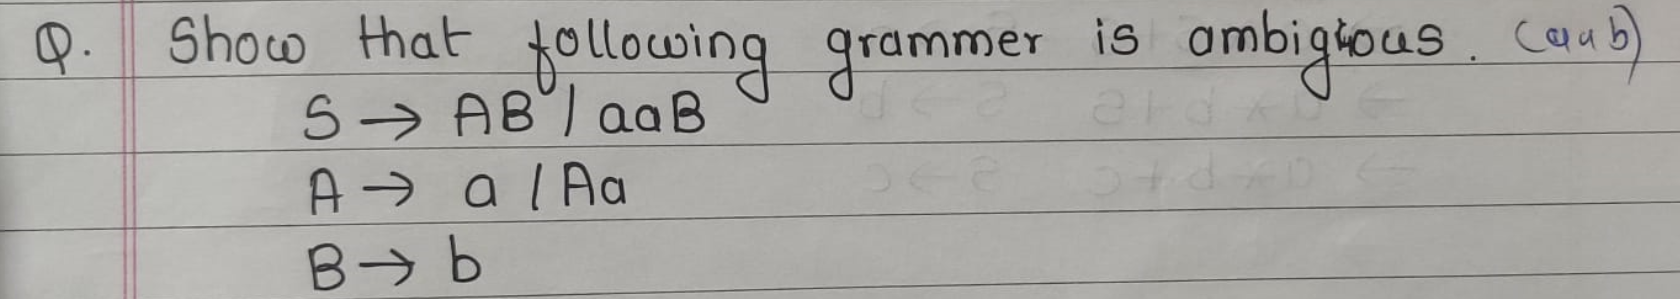 Q. Show that following grammer is ambigious. (aab)
S → AB / aaB
A → a / Aa
B → b